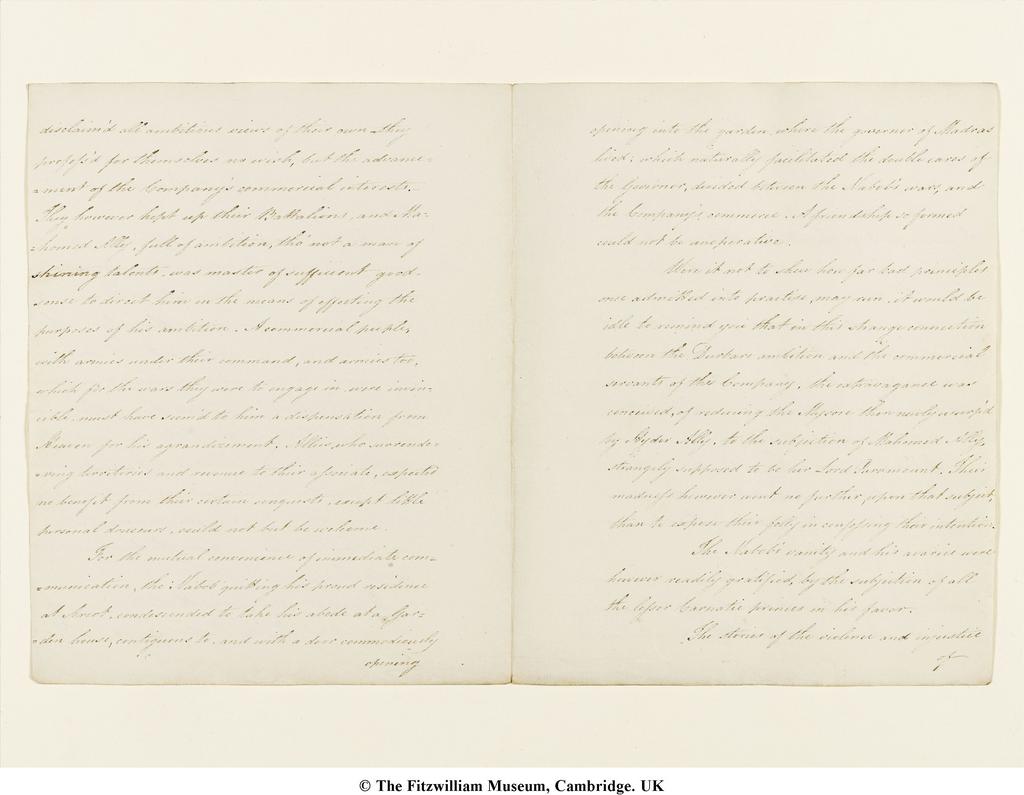 disclaim'd all ambitious views of their own they
profess'd for themselves no wish, but the advance=
=ment of the Company's commercial interests.
They however kept up their Battalions, and Ma=
=homed Ally, full of ambition, tho' not a man of
shining talents was master of sufficient good=
sense to direct him in the means of effecting the
purposes of his ambition. A commercial people,
with armies under their command, and armies too,
which for the wars they were to engage in were invin=
=cible must have seem'd to him a dispensation from
Heaven for his agrandizement. Allies, who surrende=
=ring territories and revenue to their associate, expected
no benefit from their certain conquests, except little
personal douceurs, could not but be welcome.
For the mutual convenience of immediate com=
=munication, the Nabob quitting his proud residence
at Arcot, condescended to take his abode at a Gar=
=den house, contiguous to, and with a door commodiously
opening
opening into the garden, where the governor of Madras
lived; which naturally facilitated the double cares of
the Governor, divided between the Nabob's wars, and
the Company's commerce. A friendship so formed
could not be inoperative.
Were it not to shew how far bad principles
once admitted into practise, may run, it would be
idle to remind you that in this strange connection
between the Durbars ambition and the commercial
servants of the Company, the extravagance was
conceived, of reducing the Mysore then newly usurp'd
by Hyder Ally, to the subjection of Mahomed Ally,
strangely supposed to be her Lord Paramount. Their
madness however went no further, upon that subject,
than to expose their folly in confessing their intention.
The Nabob's vanity and his avarice were
however readily gratified, by the subjection of all
the lesser Carnatic princes in his favor.
The stories of the violence and injustice
of
© The Fitzwilliam Museum, Cambridge. UK